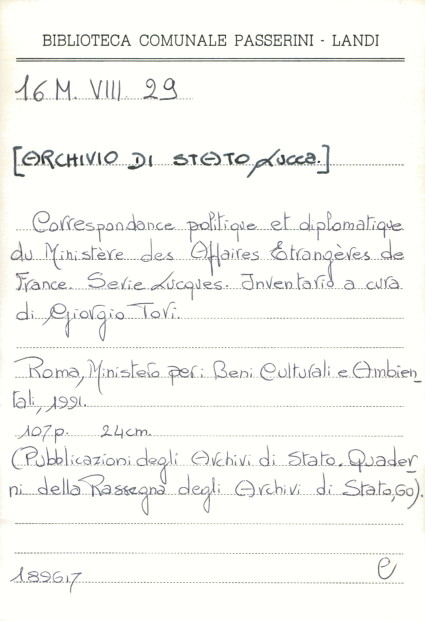 BIBLIOTECA COMUNALE PASSERINI - LANDI
16 M. VIII. 29
[ARCHIVIO DI STATO Lucca.]
Correspondance politique et diplomatique
du Ministère des Affaires Étrangères de
France. Serie Lucques. Inventario a cura
di Giorgio Tori.
Roma, Ministero per i Beni Culturali e Ambien_
tali, 1991.
107 p. 24 cm.
(Pubblicazioni degli Archivi di Stato. Quader_
ni della Rassegna degli Archivi di Stato, 60).
189617
e